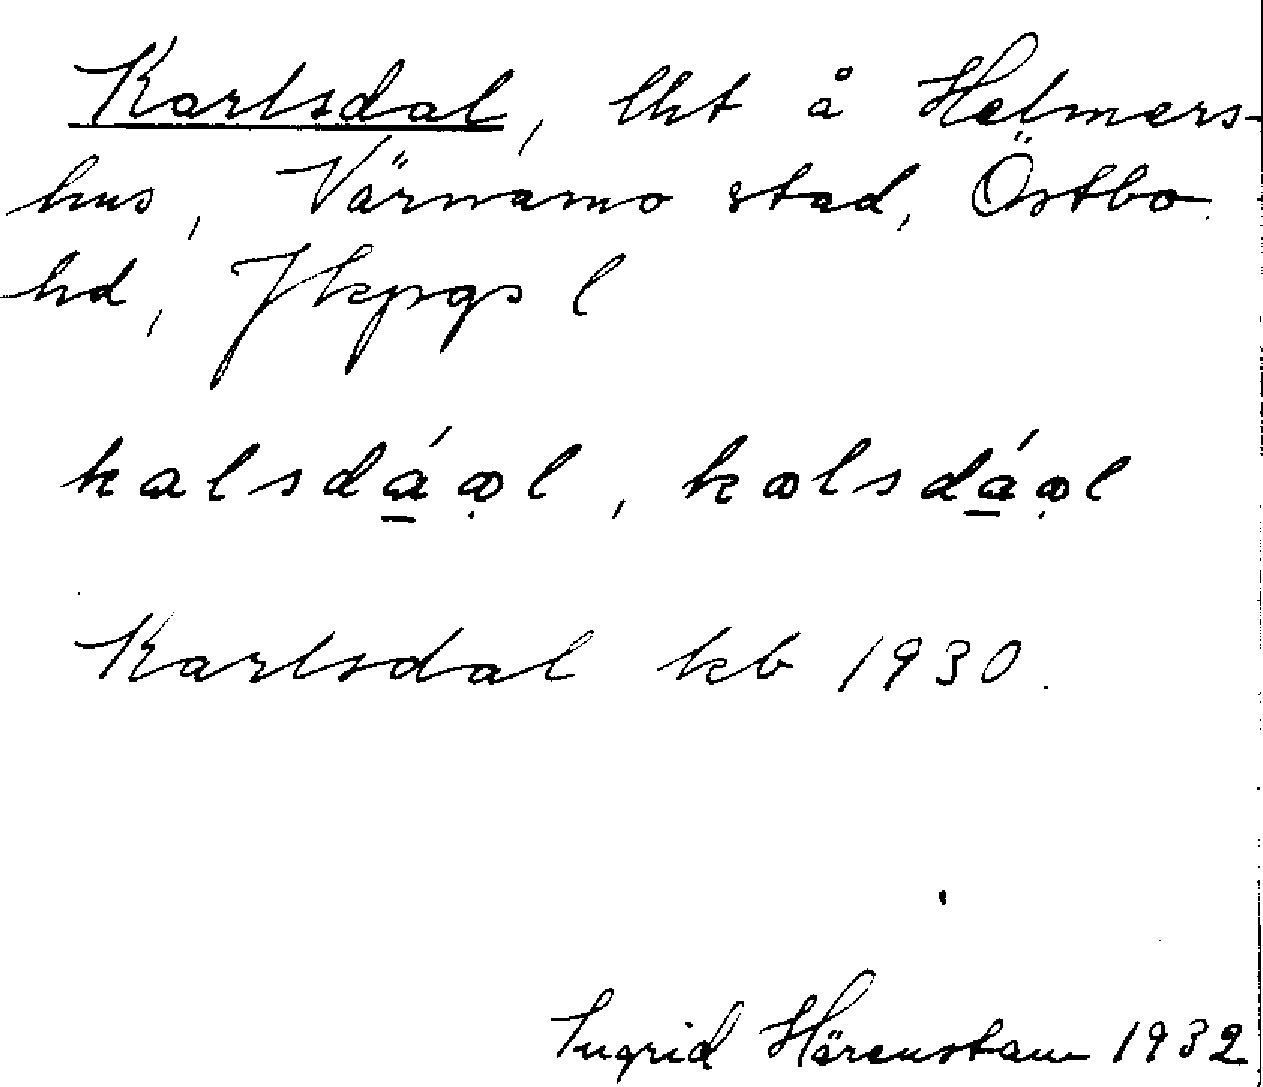 Karlsdal, lht å Helmers-
hus, Värnamo stad, Östbo
hd, Jkpgs l
kalsdáꝏl, kꝏlsdáꝏl
Karlsdal kb 1930.
Ingrid Härenstam 1932